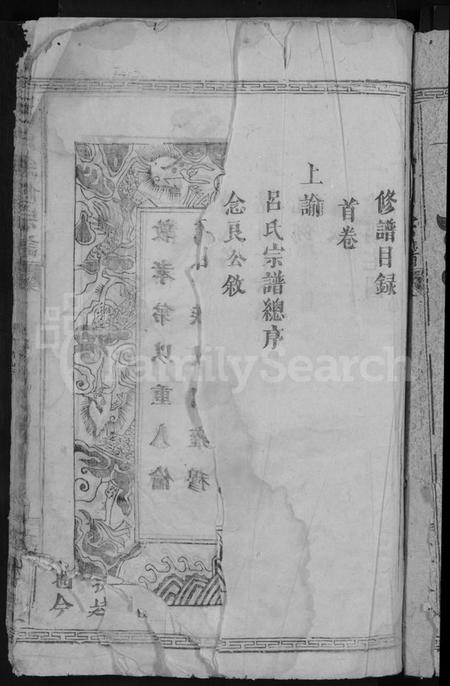 修譜目録
首卷
上諭
呂氏宗譜總序
念良公敘
敦孝弟以重人倫
雍穆
地今
FamilySearch